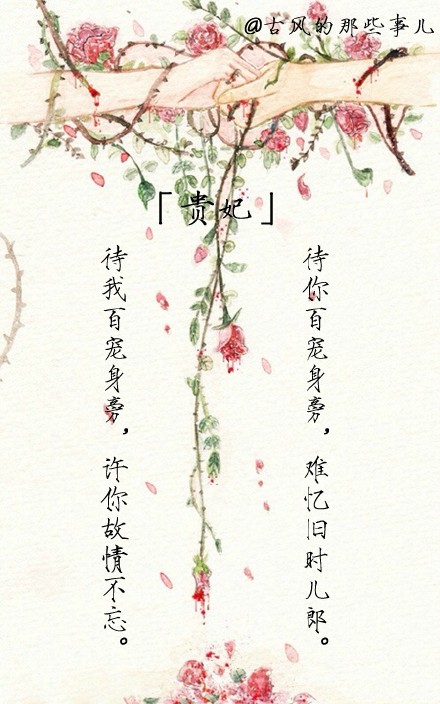 @古风的那些事儿
「贵妃」
待我百宠身旁，许你故情不忘。
待你百宠身旁，难忆旧时儿郎。